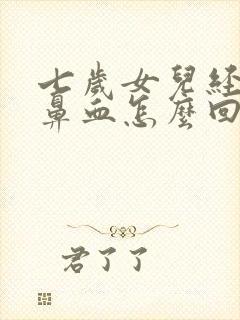 七歲女兒經
鼻血怎麼回
君了了